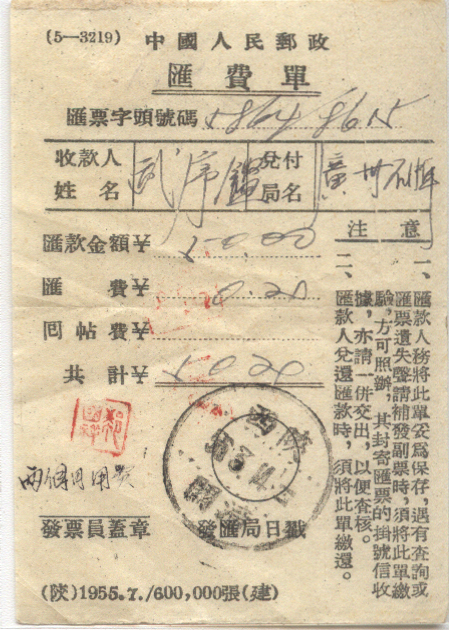 (5—3219) 中國人民郵政
匯費單
匯票字頭號碼
收款人姓名 武序鑑 兌付局名
匯款金額¥ 50.00
匯費¥ 0.20
回帖費¥
共計¥ 50.20
注意
一、匯款人務將此單妥爲保存，遇有查詢或
匯票遺失聲請補發副票時，須將此單繳
驗，方可照辦，其封寄匯票的掛號信收
據，亦請一併交出，以便查核。
二、匯款人兌還匯款時，須將此單繳還。
發票員蓋章
陝西
發匯局日戳
(陝)1955.7./600,000張(建)